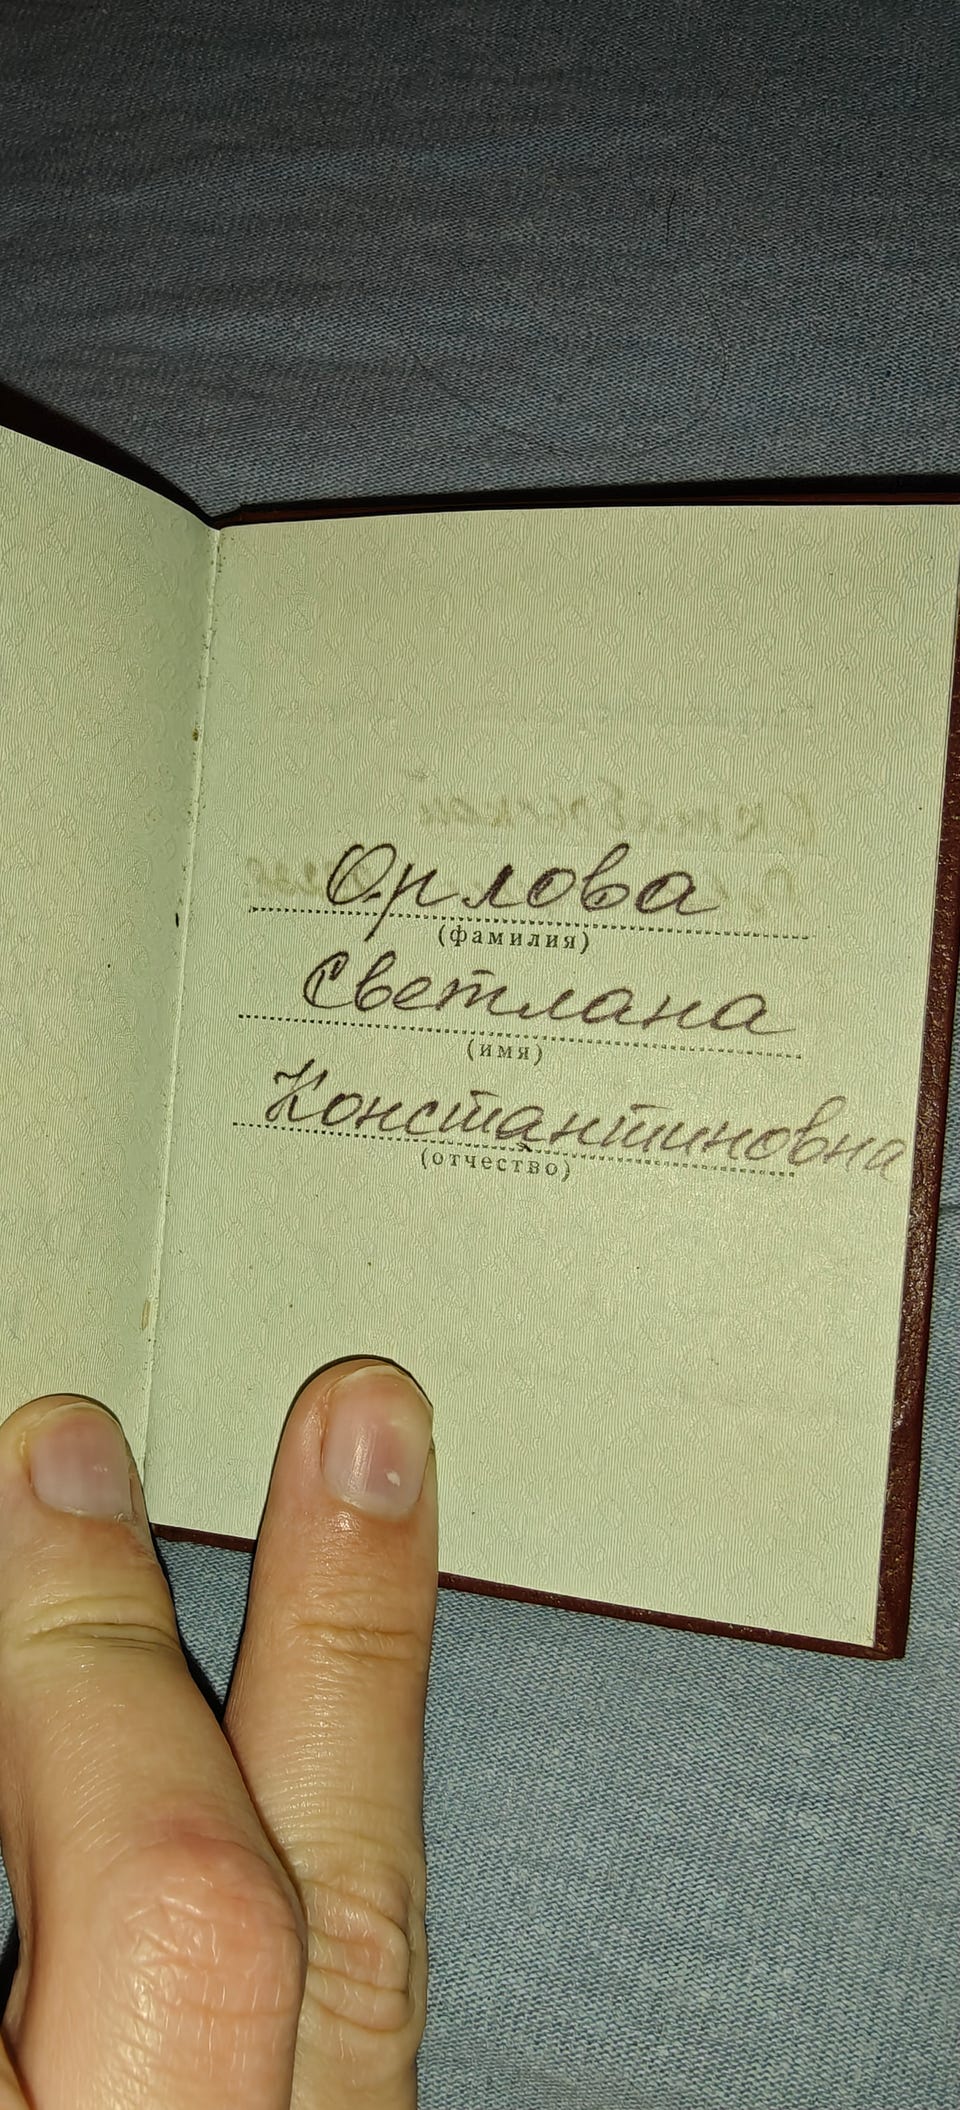 Орлова
(фамилия)
Светлана
(имя)
Константиновна
(отчество)